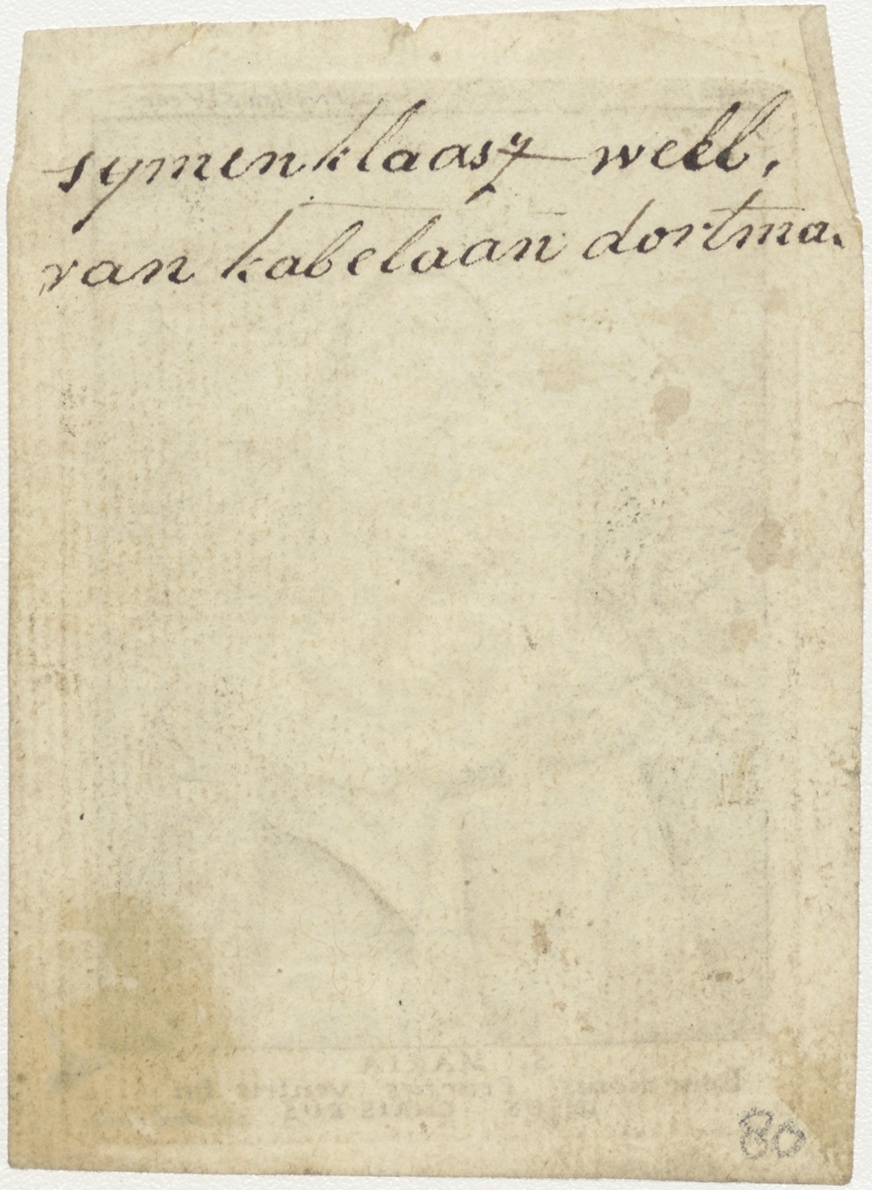 symen klaasz weel.
van kabelaan dortma.
S. MARIA
80